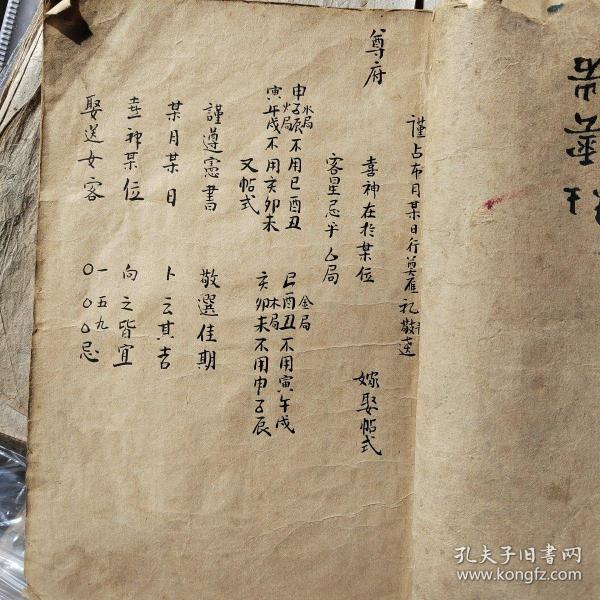 嫁娶帖式
謹占布月某日行奠雁礼敬達
尊府
喜神在於某位
客星忌乎乙局
申子辰水局不用巳酉丑
巳酉丑金局不用寅午戌
寅午戌火局不用亥卯未
亥卯未木局不用申子辰
又帖式
謹遵憲書 敬選佳期
某月某日 卜云其吉
喜神某位 向之皆宜
娶送女客 一五九忌
〇〇〇
孔夫子旧书网
www.kongfz.com